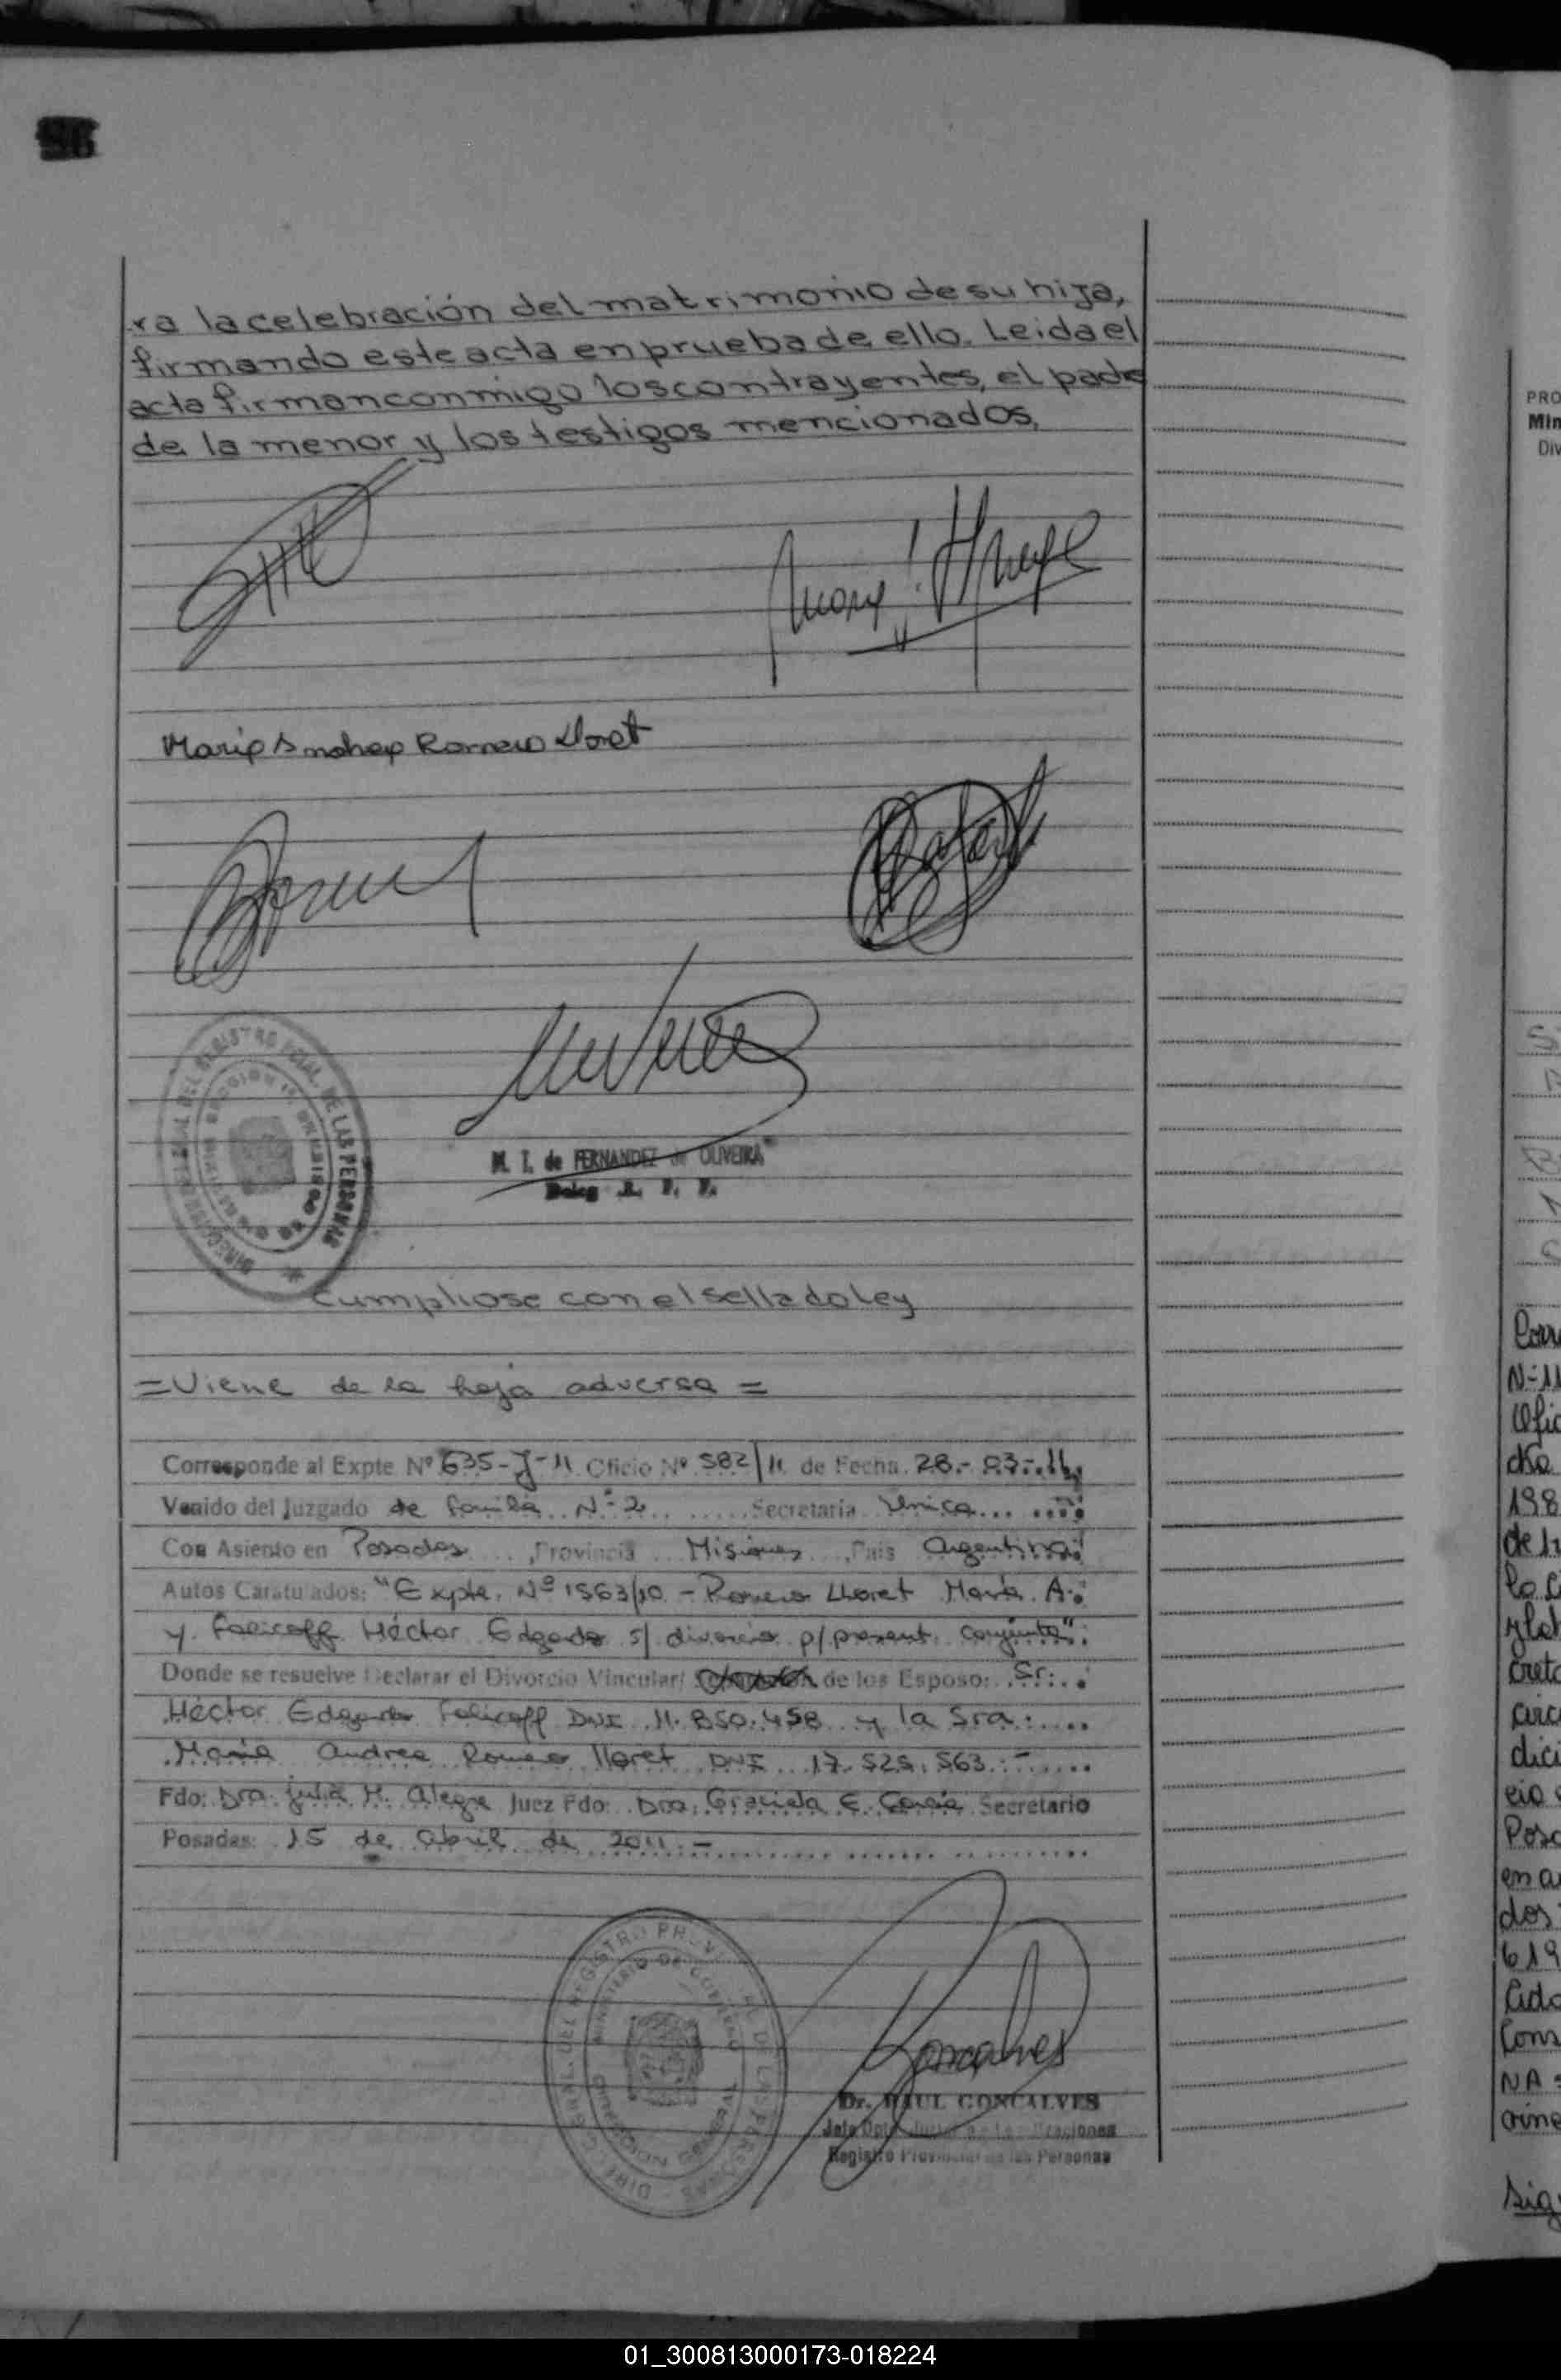 ra la celebración del matrimonio de su hija,
firmando este acta en prueba de ello. Leida el
acta firman conmigo los contrayentes, el padre
de la menor y los testigos mencionados,
Romero Lloret
M. T. de FERNANDEZ de OLIVEIRA
Deleg R. P. P.
Cumpliose con el sellado Ley
=Viene de la hoja adversa =
Corresponde al Expte Nº 635-J-11 Oficio Nº 582/11 de Fecha 28-03-11,
Venido del Juzgado de Familia Nº 2 Secretaría Unica
Con Asiento en Posadas, Provincia Misiones, País Argentina
Autos Caratulados: "Expte. Nº 1563/10 - Romero Lloret María A.
y Falicoff Héctor Edgardo s/ divorcio p/present. conjunta".
Donde se resuelve Declarar el Divorcio Vincular/ de los Esposo: Sr.
Héctor Edgardo Falicoff DNI 11.850.458 y la Sra.
María Andrea Romero Lloret DNI 17.525.563.-
Fdo: Dra. Julia H. Alegre Juez Fdo: Dra. Graciela E. García Secretario
Posadas: 15 de abril de 2011.-
DIREC. GRAL. DEL REGISTRO PROVINCIAL DE LAS PERSONAS
MINISTERIO DE GOBIERNO
Dr. RAUL GONCALVES
Registro Provincial de las Personas
PRO
Min
Div
N-11
198
de
Poso
dos
619
NA
01_300813000173-018224